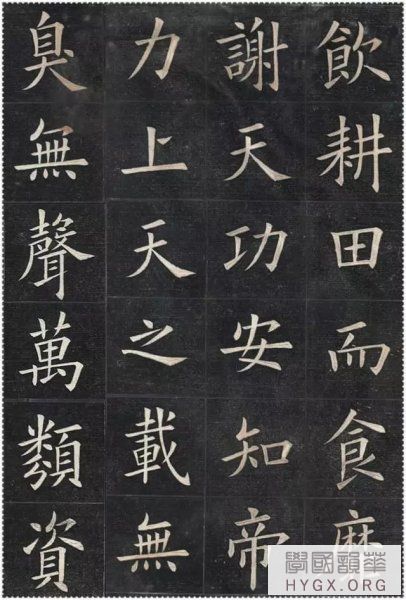 飲耕田而食靡
謝天功安知帝
力上天之載無
臭無聲萬類資
華韻國學
HYGX.ORG